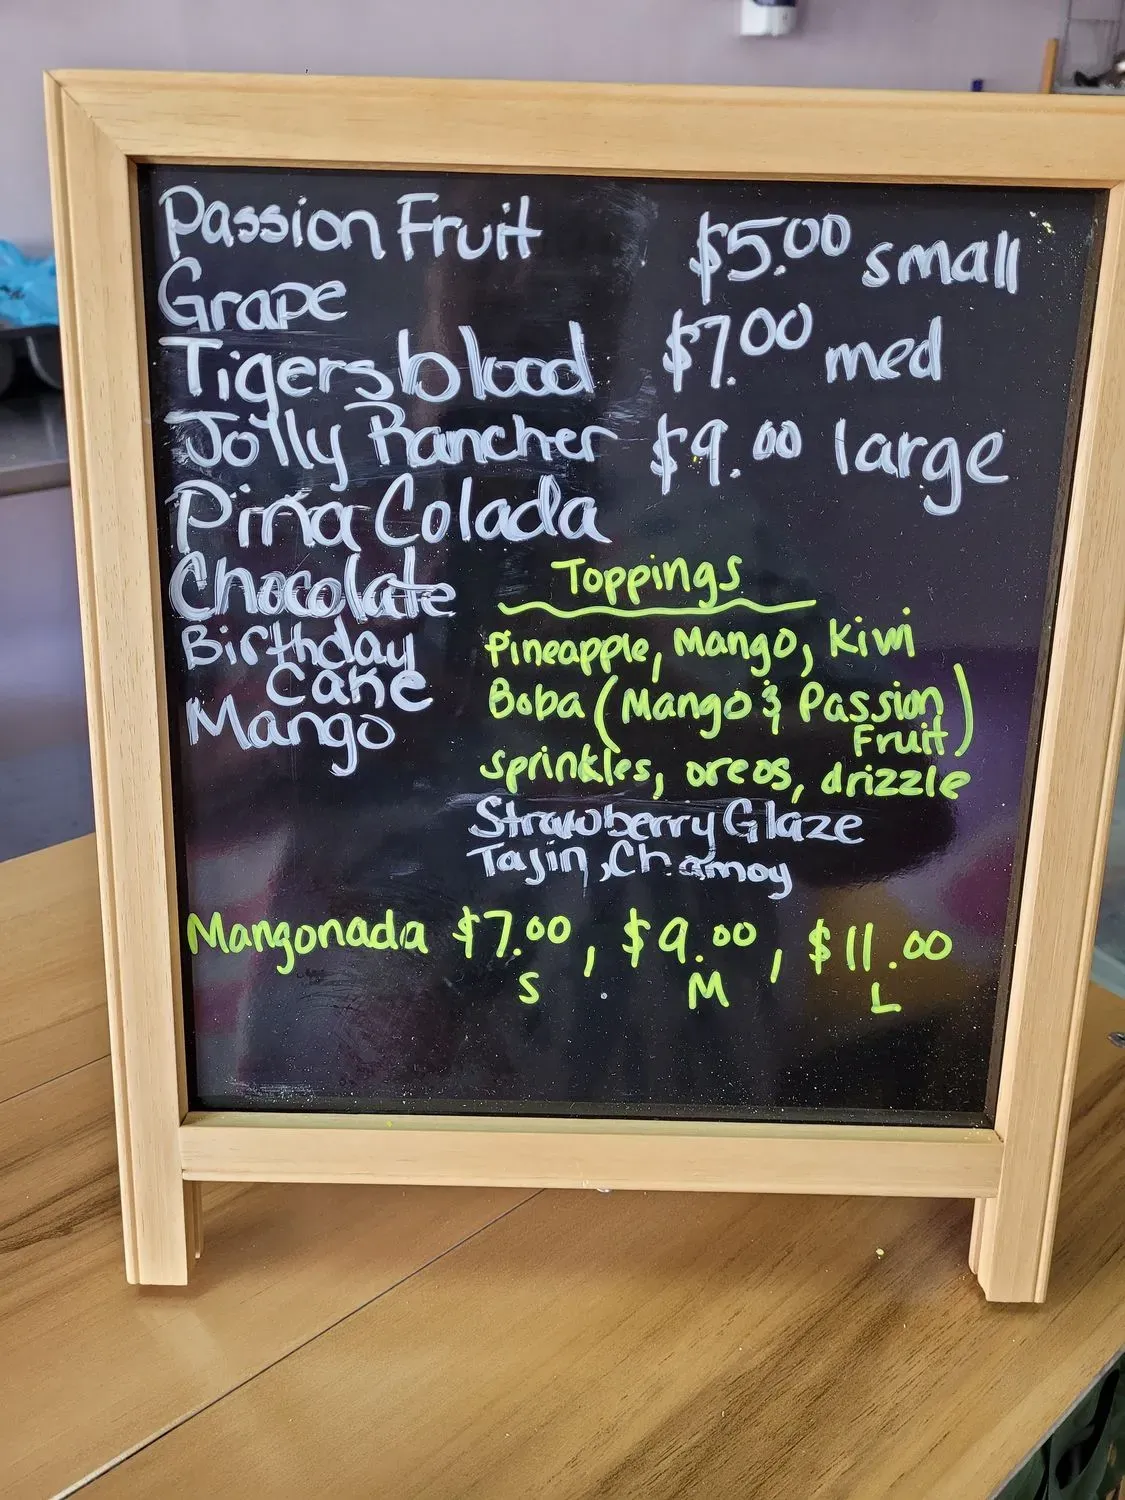 Passion Fruit
Grape
Tigersblood
Jolly Rancher
Piña Colada
Chocolate
Birthday
Cake
Mango
$5.00 small
$7.00 med
$9.00 large
Toppings
Pineapple, Mango, Kiwi
Boba (Mango & Passion
Fruit)
sprinkles, oreos, drizzle
Strawberry Glaze
Tajin, Chamoy
Mangonada $7.00, $9.00, $11.00
S M L